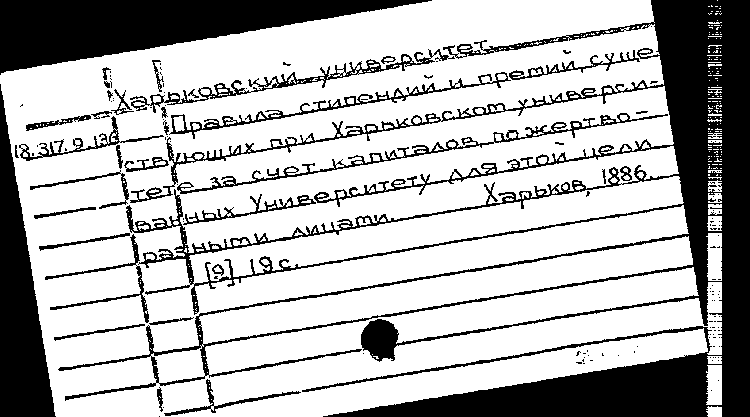 Харьковский университет.
Правила стипендий и премий, суще-
18.317.9.136
ствующих при Харьковском универси-
тете за счет капиталов, пожертво-
ванных Университету для этой цели
разными лицами. Харьков, 1886.
[9], 19 с.